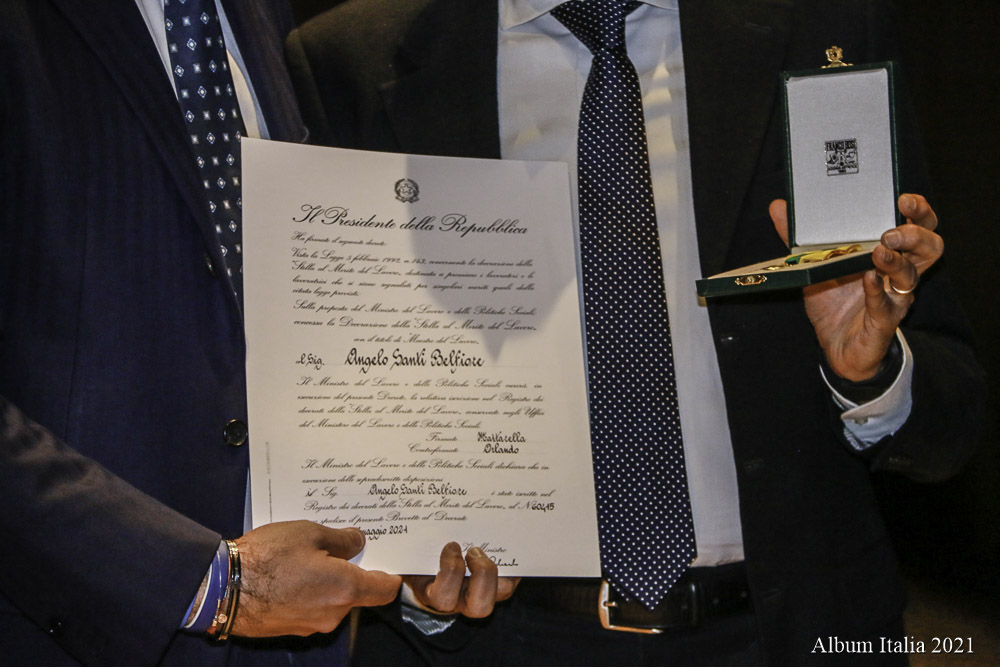 Il Presidente della Repubblica
Ha firmato il seguente decreto:
Vista la Legge 5 febbraio 1992, n. 143, concernente la decorazione della
"Stella al Merito del Lavoro", destinata a premiare i lavoratori e le
lavoratrici che si siano segnalati per singolari meriti quali dalla
citata legge previsti;
Sulla proposta del Ministro del Lavoro e delle Politiche Sociali
concessa la Decorazione della "Stella al Merito del Lavoro",
con il titolo di Maestro del Lavoro,
al Sig. Angelo Santi Belfiore
Il Ministro del Lavoro e delle Politiche Sociali curerà, in
esecuzione del presente Decreto, la relativa iscrizione nel Registro dei
decorati della "Stella al Merito del Lavoro, conservato negli Uffici
del Ministero del Lavoro e delle Politiche Sociali.
Firmato Mattarella
Controfirmato Orlando
Il Ministro del Lavoro e delle Politiche Sociali dichiara che in
esecuzione delle sopradescritte disposizioni
il Sig. Angelo Santi Belfiore è stato iscritto nel
Registro dei decorati della "Stella al Merito del Lavoro, al N° 60415
spedisce il presente Brevetto al Decorato
maggio 2021
Il Ministro
Album Italia 2021